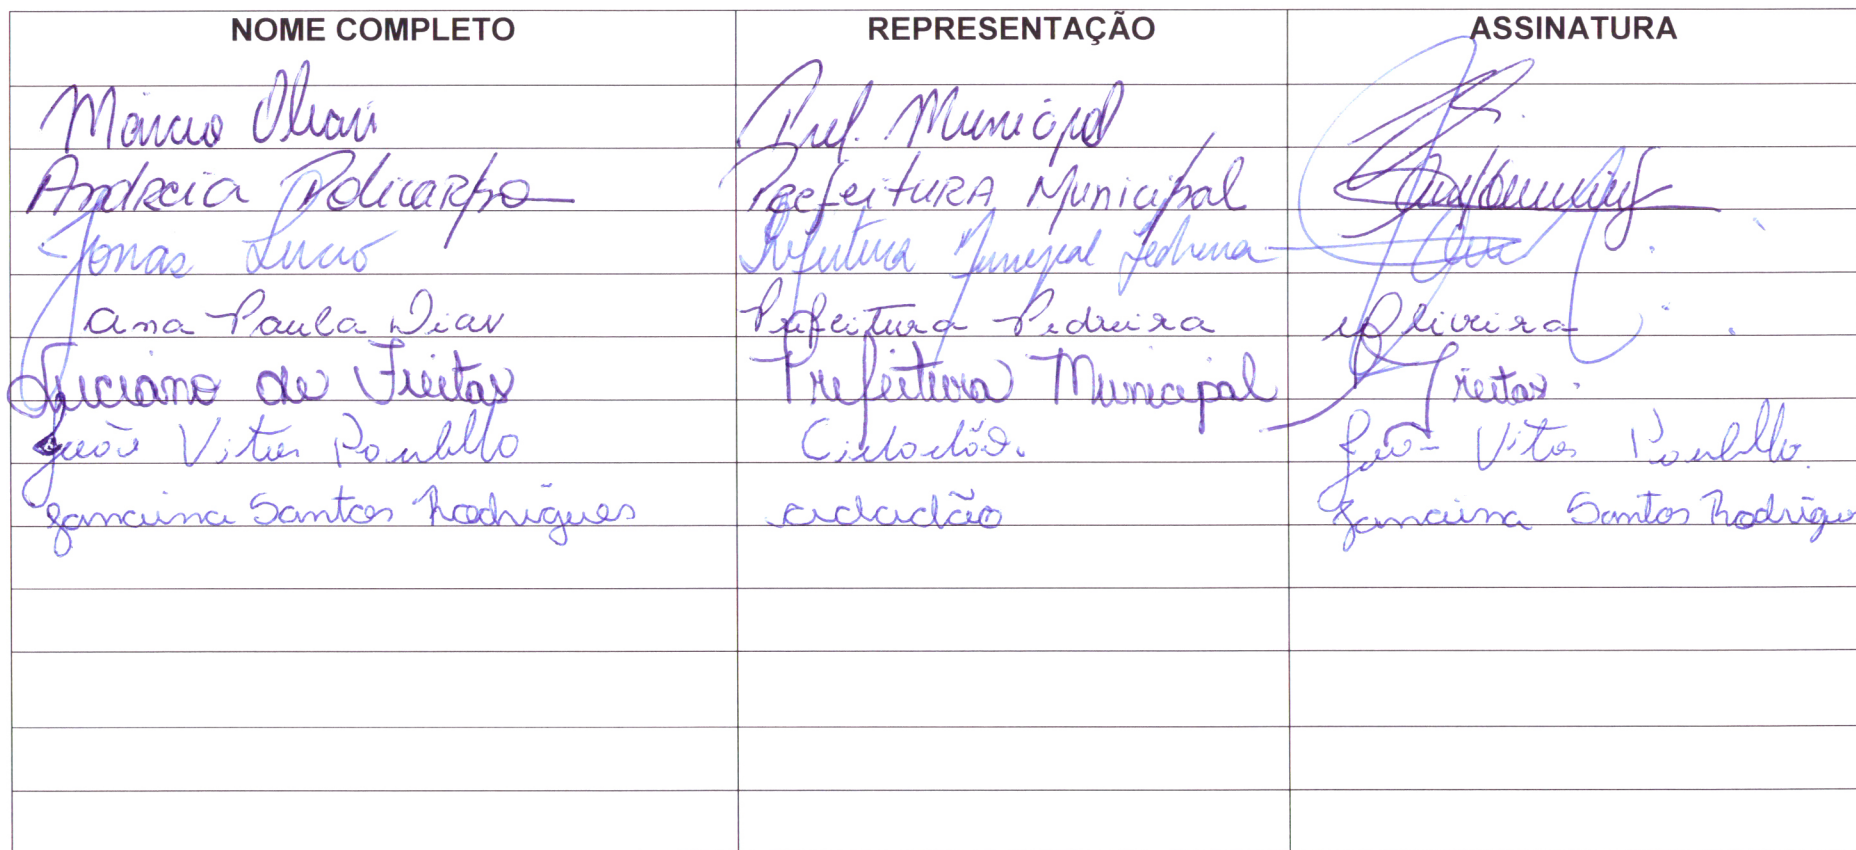 NOME COMPLETO REPRESENTAÇÃO ASSINATURA
Márcio Pref. Municipal
Andreia Policarpo Prefeitura Municipal
Jonas Lucio Prefeitura Municipal Pedreira
Ana Paula Dias Prefeitura Pedreira Oliveira
Luciano de Freitas Prefeitura Municipal Freitas.
João Vitor Cidadão. João Vitor
Janaina Santos Rodrigues cidadão Janaina Santos Rodrigue